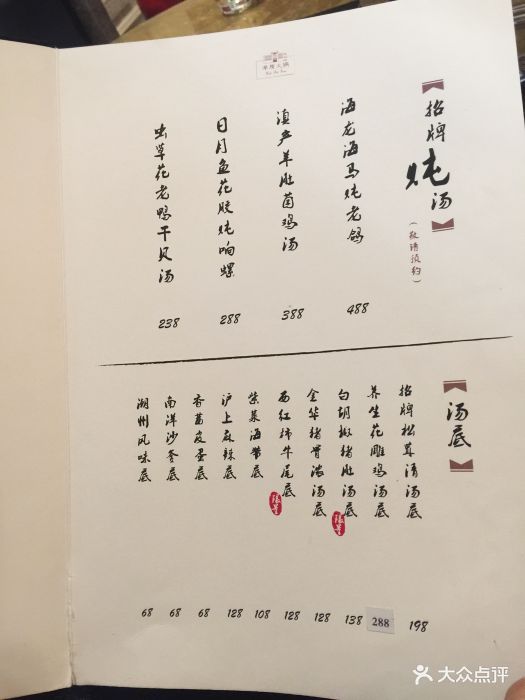 招牌炖汤
(敬请预约)
海龙海马炖老鸽
488
滇产羊肚菌鸡汤
388
日月鱼花胶炖响螺
288
虫草花老鸭干贝汤
238
汤底
招牌松茸清汤底
198
养生花雕鸡汤底
288
白胡椒猪肚汤底
138
金华猪骨浓汤底
128
西红柿牛尾底
128
紫菜海带底
108
沪上麻辣底
128
香菖皮蛋底
68
南洋沙爹底
68
潮州风味底
68
大众点评